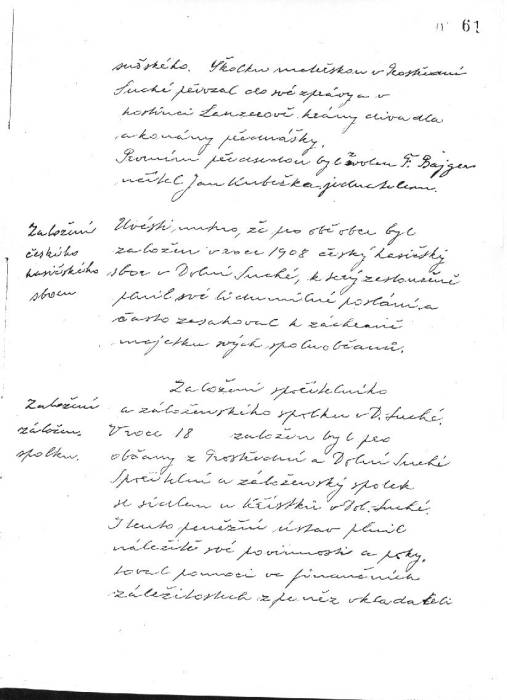 61
sušského. Školku mateřskou v Prostřední
Suché převzal do své zprávy a v
hostinci Lanzerově, hrány divadla
a konány přednášky.
Prvním předsedou byl zvolen F. Bajger
učitel Jan Kubiczka, jednatelem.
Založení
českého
hasičského
sboru
Uvésti nutno, že pro obě obce byl
založen v roce 1908 český hasičský
sbor v Dolní Suché, který zeslouženě
plnil své lidumilné poslání a
často zasahoval k záchraně
majetku svých spoluobčanů.
Založení
záložen.
spolku.
Založení spořitelního
a záloženského spolku v D. Suché.
V roce 18 založen byl pro
občany z Prostřední a Dolní Suché
Spořitelní a záloženský spolek
se sídlem u Křístků v Dol. Suché.
I tento peněžní ústav plnil
náležitě své povinnosti a posky.
toval pomoci ve finančních
záležitostech z peněz vkladateli